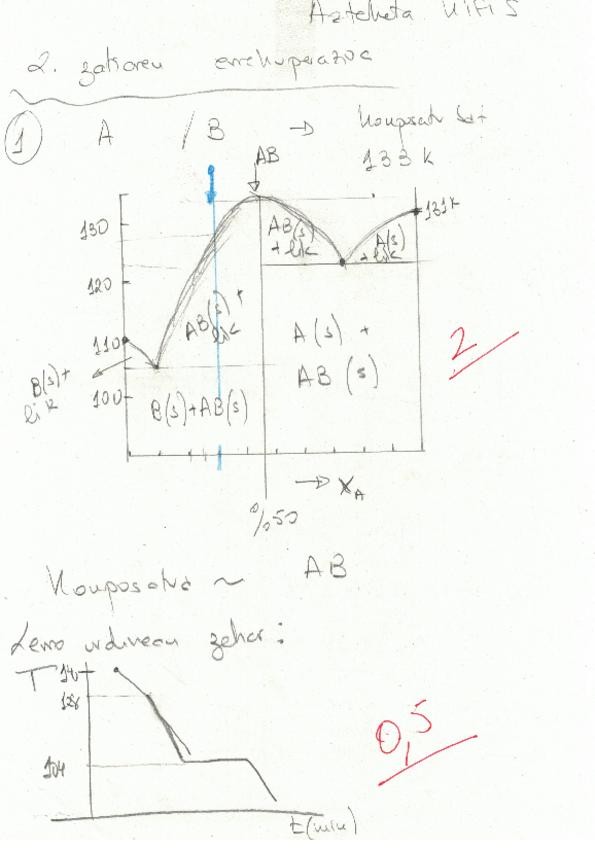 Azterketa
2. zatiaren errekuperazioa
1 A / B → Konposatu bat
133 K
AB
130
120
110
100
AB(s)
+ lik
A(s)
+ lik
131K
AB(s) +
lik
A(s) +
AB(s)
B(s)+
lik
B(s)+AB(s)
→ XA
%50
2
Konposatua ~ AB
Lerro urdinean zehar:
T
128
104
t(min)
0,5